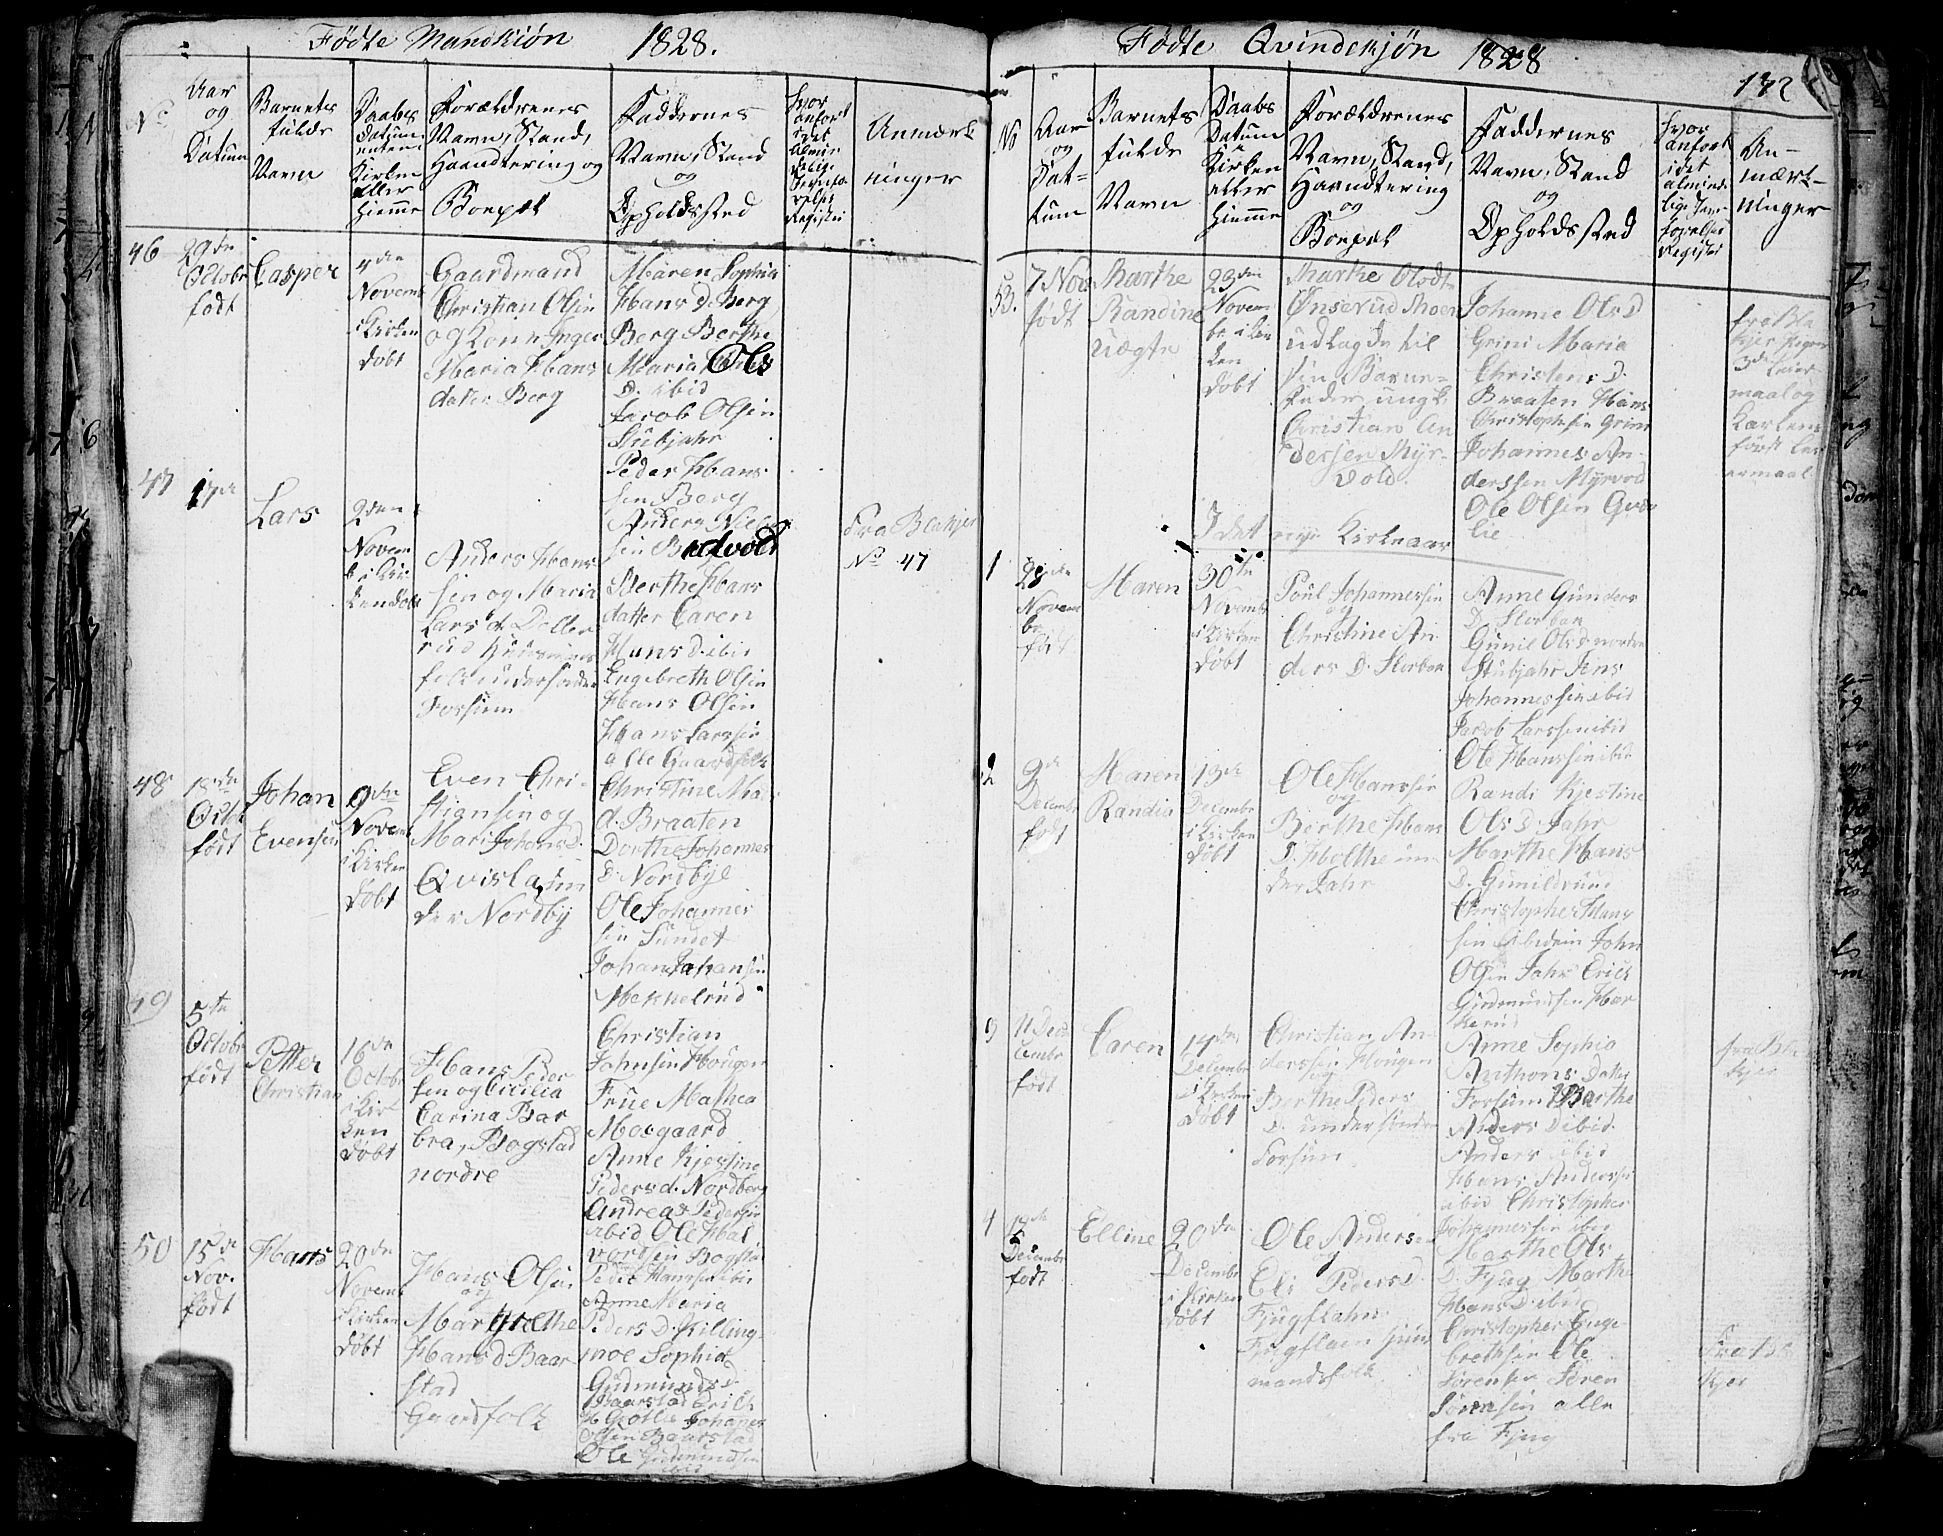 Fødte Mandkiøn 1828.
No
Aar
og
Datum
Barnets
fulde
Navn
Daabs
Datum
enten i
Kirken
eller
Hiemme
Forældrenes
Navn, Stand,
Haandtering og
Boepæl
Faddernes
Navn, Stand
og
Opholdssted
hvor
anført
i det
Almin
delige
Jevnfø
relses
Register
Anmærk
ninger
46
29de
Octobr
født
Casper
9de
Novemb
i Kirken
døbt
Gaardmand
Christian Olsen
og Kone Inger
Maria Hans
datter Berg
Maren Sophia
Hans d. Berg
Berg Berthe
Maria Ols
D. ibid
Jacob Olsen
Stubjahr
Peder Hans
sen Berg
Anders Niel
sen
47
17de
Lars
2den
Novem
b i Kir
ken døbt
Anders Hans
sen og Maria
Lars d. Doller
rud Huusmands
folk under søndre
Fossum
Berthe Hans
datter Caren
Hans D. ibid
Engebreth Olsen
Hans Olsen
Hans Larssen
alle Gaardfolk
Fra Blakjer
No 47
48
18de
Octob
født
Johan
Evensen
9de
Novemb
i Kirken
døbt
Even Chri-
stiansen og
Mari Johans D.
Qvisla un
der Nordby
Christine Ma
d. Braaten
Dorthe Johannes
D. Nordbye
Ole Johannes
sen Sundet
Johan Johansen
Mekkelrud
49
5te
Octobr
født
Petter
Christian
16de
Octobr
i Kir
ken
døbt
Hans Peder
sen og Cicilia
Carina Bar
bra, Bogstad
nordre
Christian
Jahnsen Hougen
Frue Mathea
Mosgaard
Anne Kjestine
Peders d. Nordberg
Andreas Pedersen
ibid Ole Hal
vorsen Bogstad
Peder Hanssen ibid
50
15de
Nov.
født
Hans
20de
Novemb
i Kirken
døbt
Hans Olsen
og
Margrethe
Hans d. Baar
stad
Gaardfolk
Anne Maria
Peders D. Killing-
moe Sophia
Gudmunds
Baarstad Erich
Johannes
Olsen Baarstad
Ole Gudmundsen
ibid
Fødte Qvindekjøn 1828
132
No
Aar
og
Dat-
tum
Barnets
fulde
Navn
Daabs
Datum
i
Kirken
eller
Hiemme
Forældrenes
Navn, Stand,
Haandtering
og
Boepæl
Faddernes
Navn, Stand
og
Opholdssted
hvor
anført
i det
alminde
lige Jevn
førelses
Register
An-
mærk-
ninger
53.
7 Nov
født
Marthe
Randine
uægte
23de
Novem
br i Kir
ken
døbt
Marthe Olsdt
Ønserud Moer
udlagde til
sin Barne-
fader ungk
Christian An
dersen Myr-
vold.
Johanne Ols D
Grini Maria
Christens D.
Braaten Hans
Christophersen Grini
Johannes An-
derssen Myrvold
Ole Olsen Qvær
lie
fra Bla
kjer
3de Leier
maal og
Karlens
først Lei
ermaal
I det nye Kirkeaar
1
21de
Novem
br
født
Maren
30te
Novembr
i Kirken
døbt
Poul Johannessen
og
Christine An
ders D. Slorben
Anne Gunders
D. Slorben
Gunil Ols D nordre
Stubjahr Jens
Johannessen ibid
Jacob Larssen ibid
Ole Hanssen ibid
2
9de
Decembr
født
Maren
Randia
13de
Decembr
i Kirken
døbt
Ole Hanssen
og
Berthe Hans
D. Holthe un
der Jahr
Randi Kjestine
Ols D. Jahr
Marthe Hans
D. Gunildrud
Christopher Hans
sen ibidem John
Olsen Jahr Erich
Gudmundsen Har
kerud
3
11 Dec
cembr
født
Caren
14de
Decembr
i Kirken
døbt
Christian An
derssen Hougen
Berthe Peders
D. under søndre
Forsum
Anne Sophia
Anthons Datter
Forsum Berthe
Anders D ibid.
Anders ibid
Hans Anderssen
ibid Christopher
Johannessen ibid
fra Bla
kjer
4
12te
Decembr
født
Elline
20de
Decembr
i Kirken
døbt
Ole Andersen
og
Eli Peders D.
Fjugflahn
Fjugflaen huus
mandsfolk
Marthe Ols
D. Fjug Marthe
Hans D. ibid
Christopher Enge-
brethsen Ole
Sørensen Søren
Sørensen alle
fra Fjug
Fra Bla
kjer